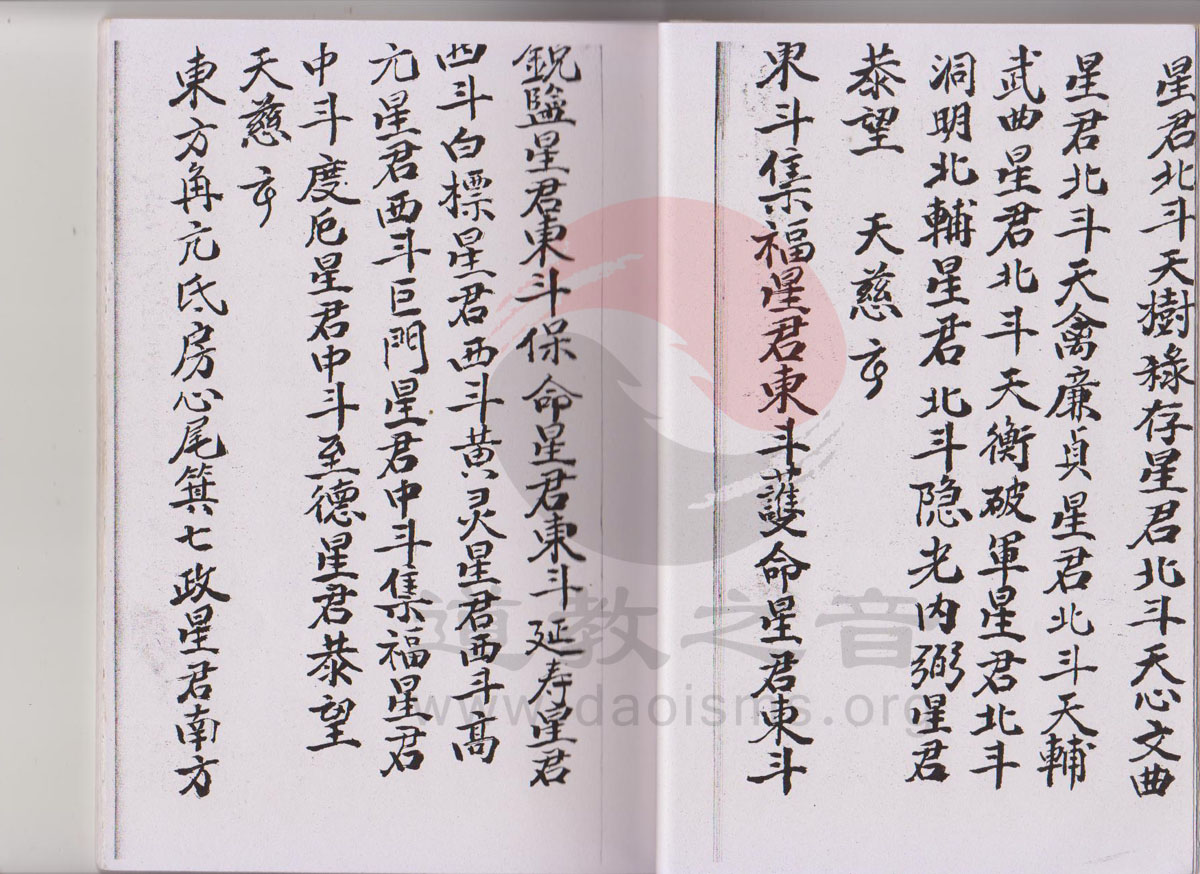 星君北斗天樹祿存星君北斗天心文曲
星君北斗天禽廉貞星君北斗天輔
武曲星君北斗天衡破軍星君北斗
洞明北輔星君北斗隐光内弼星君
恭望 天慈
東斗集福星君東斗護命星君東斗
星君東斗保命星君東斗延寿星君
西斗白標星君西斗黄灵星君西斗高
元星君西斗巨門星君中斗集福星君
中斗度厄星君中斗至德星君恭望
天慈
東方角亢氐房心尾箕七政星君南方
道教之音
www.daoisms.org